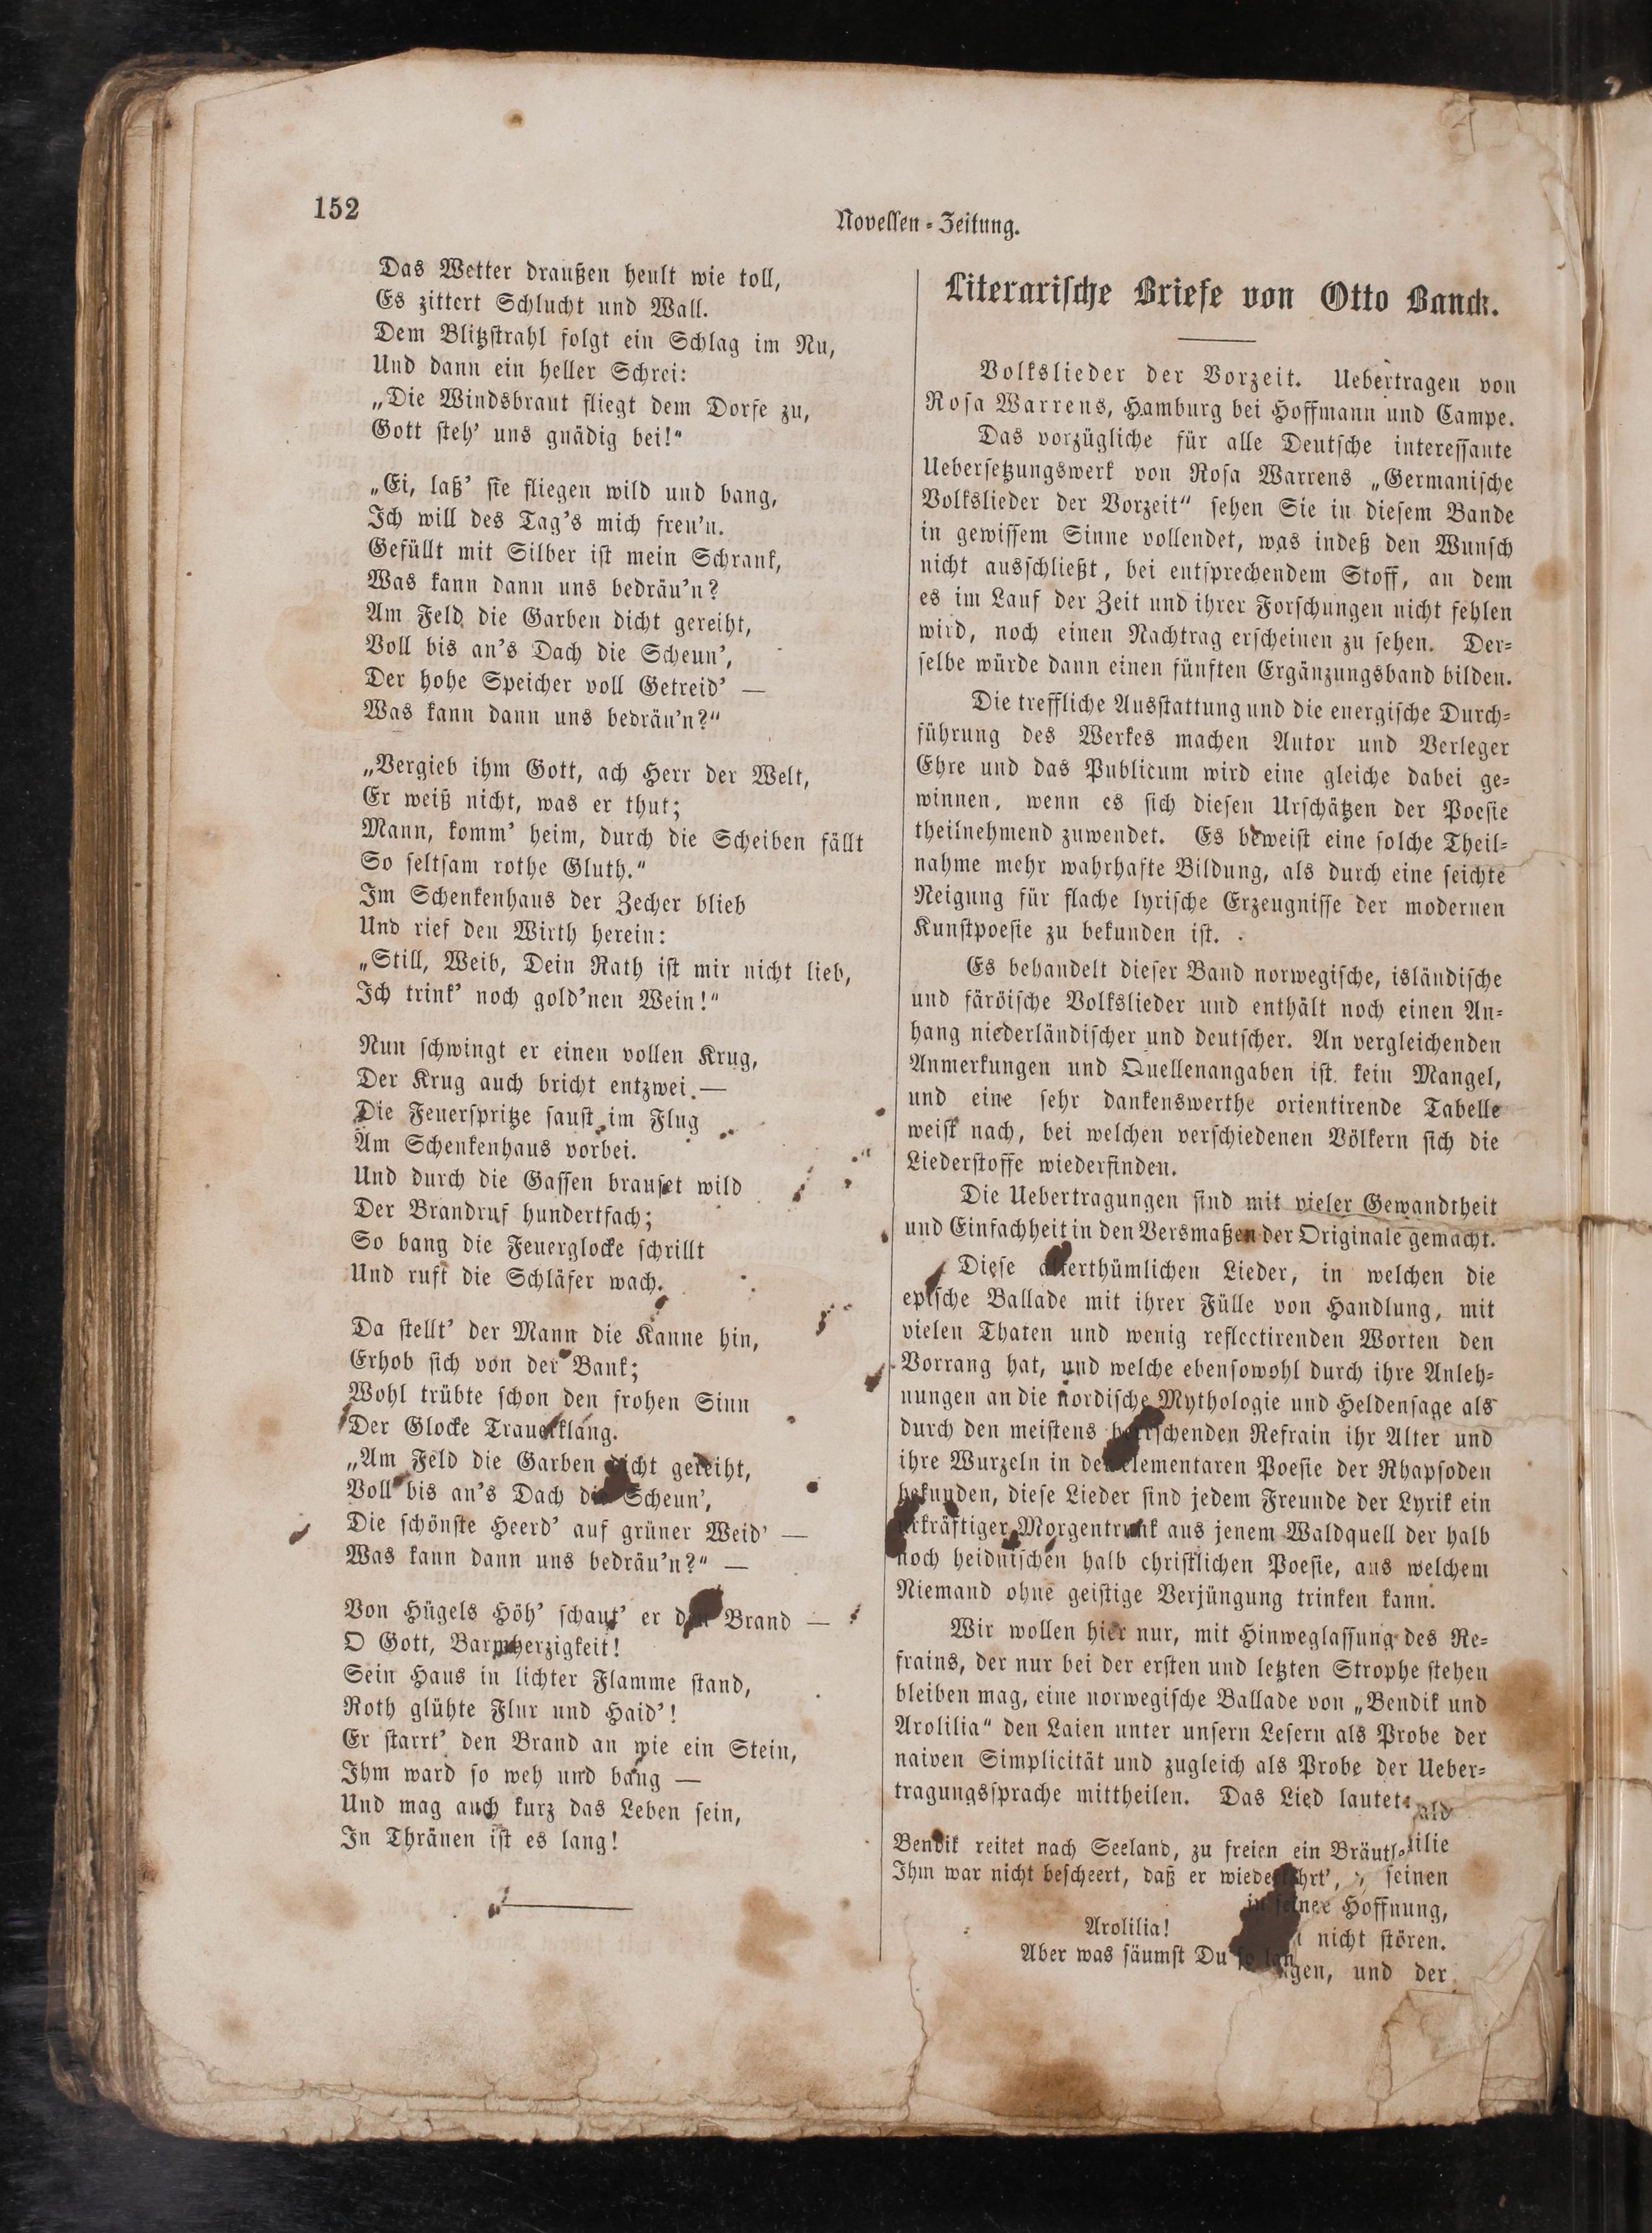 152
Novellen-Zeitung.
Das Wetter draußen heult wie toll,
Es zittert Schlucht und Wall.
Dem Blitzstrahl folgt ein Schlag im Nu,
Und dann ein heller Schrei:
„Die Windsbraut fliegt dem Dorfe zu,
Gott steh' uns gnädig bei!“
„Ei, laß' sie fliegen wild und bang,
Ich will des Tag's mich freu'n.
Gefüllt mit Silber ist mein Schrank,
Was kann dann uns bedräu'n?
Am Feld die Garben dicht gereiht,
Voll bis an's Dach die Scheun',
Der hohe Speicher voll Getreid' —
Was kann dann uns bedräu'n?“
„Vergieb ihm Gott, ach Herr der Welt,
Er weiß nicht, was er thut;
Mann, komm' heim, durch die Scheiben fällt
So seltsam rothe Gluth.“
Im Schenkenhaus der Zecher blieb
Und rief den Wirth herein:
„Still, Weib, Dein Rath ist mir nicht lieb,
Ich trink' noch gold'nen Wein!“
Nun schwingt er einen vollen Krug,
Der Krug auch bricht entzwei. —
Die Feuerspritze saust im Flug
Am Schenkenhaus vorbei.
Und durch die Gassen brauset wild
Der Brandruf hundertfach;
So bang die Feuerglocke schrillt
Und ruft die Schläfer wach.
Da stellt' der Mann die Kanne hin,
Erhob sich von der Bank;
Wohl trübte schon den frohen Sinn
Der Glocke Trauerklang.
„Am Feld die Garben dicht gereiht,
Voll bis an's Dach die Scheun',
Die schönste Heerd' auf grüner Weid' —
Was kann dann uns bedräu'n?“ —
Von Hügels Höh' schaut' er den Brand —
O Gott, Barmherzigkeit!
Sein Haus in lichter Flamme stand,
Roth glühte Flur und Haid'!
Er starrt' den Brand an wie ein Stein,
Ihm ward so weh und bang —
Und mag auch kurz das Leben sein,
In Thränen ist es lang!
Literarische Briefe von Otto Banck.
Volkslieder der Vorzeit. Uebertragen von
Rosa Warrens, Hamburg bei Hoffmann und Campe.
Das vorzügliche für alle Deutsche interessante
Uebersetzungswerk von Rosa Warrens „Germanische
Volkslieder der Vorzeit“ sehen Sie in diesem Bande
in gewissem Sinne vollendet, was indeß den Wunsch
nicht ausschließt, bei entsprechendem Stoff, an dem
es im Lauf der Zeit und ihrer Forschungen nicht fehlen
wird, noch einen Nachtrag erscheinen zu sehen. Der-
selbe würde dann einen fünften Ergänzungsband bilden.
Die treffliche Ausstattung und die energische Durch-
führung des Werkes machen Autor und Verleger
Ehre und das Publicum wird eine gleiche dabei ge-
winnen, wenn es sich diesen Urschätzen der Poesie
theilnehmend zuwendet. Es beweist eine solche Theil-
nahme mehr wahrhafte Bildung, als durch eine seichte
Neigung für flache lyrische Erzeugnisse der modernen
Kunstpoesie zu bekunden ist.
Es behandelt dieser Band norwegische, isländische
und färöische Volkslieder und enthält noch einen An-
hang niederländischer und deutscher. An vergleichenden
Anmerkungen und Quellenangaben ist kein Mangel,
und eine sehr dankenswerthe orientirende Tabelle
weist nach, bei welchen verschiedenen Völkern sich die
Liederstoffe wiederfinden.
Die Uebertragungen sind mit vieler Gewandtheit
und Einfachheit in den Versmaßen der Originale gemacht.
Diese alterthümlichen Lieder, in welchen die
epische Ballade mit ihrer Fülle von Handlung, mit
vielen Thaten und wenig reflectirenden Worten den
Vorrang hat, und welche ebensowohl durch ihre Anleh-
nungen an die nordische Mythologie und Heldensage als
durch den meistens herrschenden Refrain ihr Alter und
ihre Wurzeln in der elementaren Poesie der Rhapsoden
bekunden, diese Lieder sind jedem Freunde der Lyrik ein
urkräftiger Morgentrunk aus jenem Waldquell der halb
noch heidnischen halb christlichen Poesie, aus welchem
Niemand ohne geistige Verjüngung trinken kann.
Wir wollen hier nur, mit Hinweglassung des Re-
frains, der nur bei der ersten und letzten Strophe stehen
bleiben mag, eine norwegische Ballade von „Bendik und
Arolilia“ den Laien unter unsern Lesern als Probe der
naiven Simplicität und zugleich als Probe der Ueber-
tragungssprache mittheilen. Das Lied lautet
Bendik reitet nach Seeland, zu freien ein Bräutle
Ihm war nicht bescheert, daß er seinen
Hoffnung,
Arolilia!
nicht stören.
Aber was säumst Du so
und der